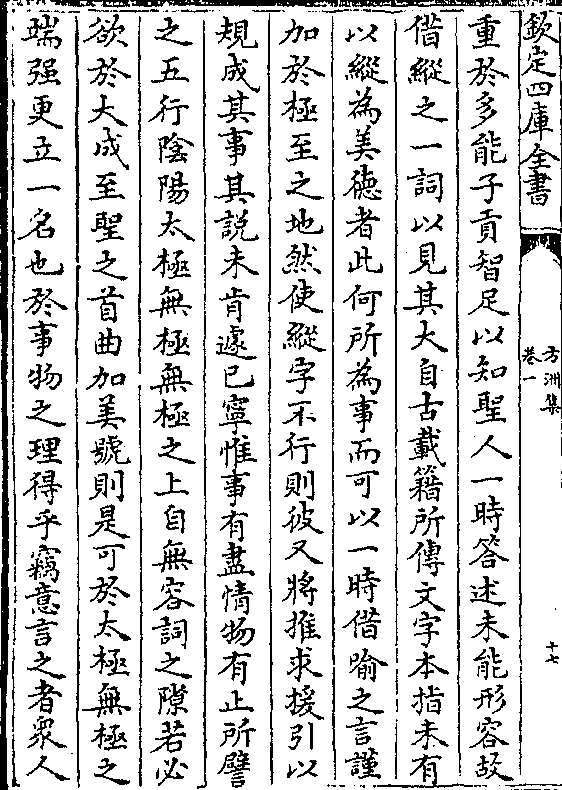 欽定四庫全書
方洲集
卷一
十七
重於多能子貢智足以知聖人一時答述未能形容故
借縱之一詞以見其大自古載籍所傳文字本指未有
以縱為美德者此何所為事而可以一時借喻之言謹
加於極至之地然使縱字不行則彼又將推求援引以
規成其事其說未肯遽已寧惟事有盡情物有止所譬
之五行陰陽太極無極無極之上自無容詞之隙若必
欲於大成至聖之首曲加美號則是可於太極無極之
端强更立一名也於事物之理得乎竊意言之者衆人